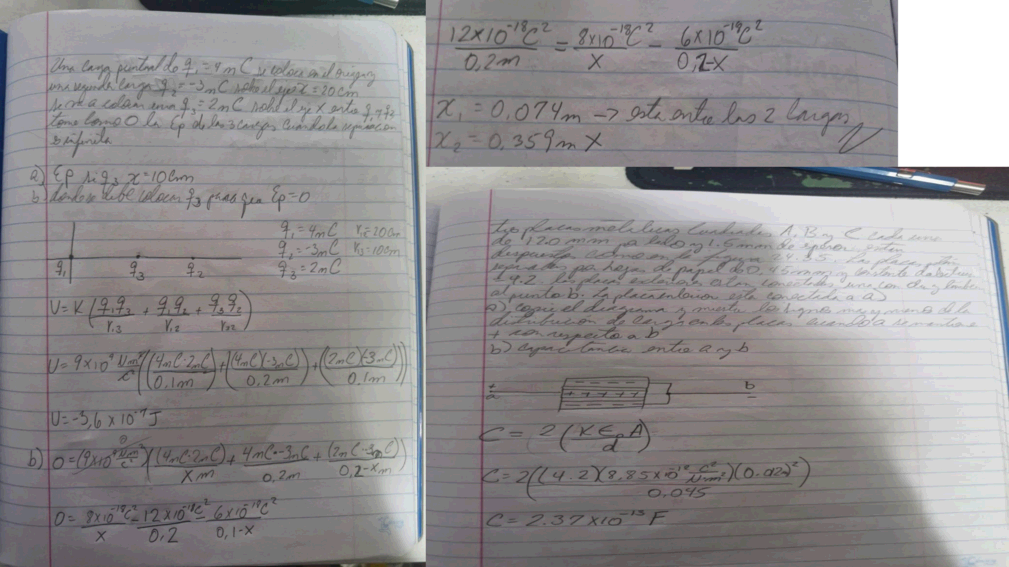 Una carga puntual de q₁ = 4nC se coloca en el origen y
una segunda carga q₂ = -3nC sobre el eje x = 20cm
se va a colocar una q₃ = 2nC sobre el eje x entre q₁ y q₂
tome como 0 la Ep de las 3 cargas cuando la separacion
es infinita
a) Ep si q₃ x=10cm
b) donde se debe colocar q₃ para que Ep=0
q₁ = 4nC r₁=20cm
q₂ = -3nC r₂=10cm
q₃ = 2nC
q₁ q₃ q₂
U = K (q₁q₃/r₁₃ + q₁q₂/r₁₂ + q₃q₂/r₃₂)
U = 9x10⁹ Nm²/C² ((4nC·2nC)/0,1m + (4nC)(-3nC)/0,2m + (2nC)(-3nC)/0,1m)
U = -3,6 x 10⁻⁷ J
b) 0 = (9x10⁹ Nm²/C²)((4nC·2nC)/xm + 4nC·-3nC/0,2m + (2nC·-3nC)/0,2-xm)
0 = 8x10⁻¹⁸C²/x - 12x10⁻¹⁸C²/0,2 - 6x10⁻¹⁸C²/0,1-x
12x10⁻¹⁸C²/0,2m = 8x10⁻¹⁸C²/x - 6x10⁻¹⁸C²/0,2-x
x₁ = 0,074m -> esta entre las 2 cargas
x₂ = 0,359m X
tres placas metalicas cuadradas A, B y C cada una
de 120 mm por lado y 1.5 mm de espesor estan
dispuestas como en la figura 24.35. Las placas estan
separadas por hojas de papel de 0,45mm y constante dielectrica
4.2. Las placas exteriores estan conectadas una con otra y tambien
al punto b. La placa interior esta conectada a a)
a) copie el diagrama y muestre los signos mas y menos de la
distribucion de carga en las placas cuando a se mantiene
+ con respecto a b
b) capacitancia entre a y b
+ a b -
C = 2 (K ε₀ A / d)
C = 2((4.2)(8.85x10⁻¹² C²/Nm²)(0.022)²/0.045)
C = 2.37 x10⁻¹³ F